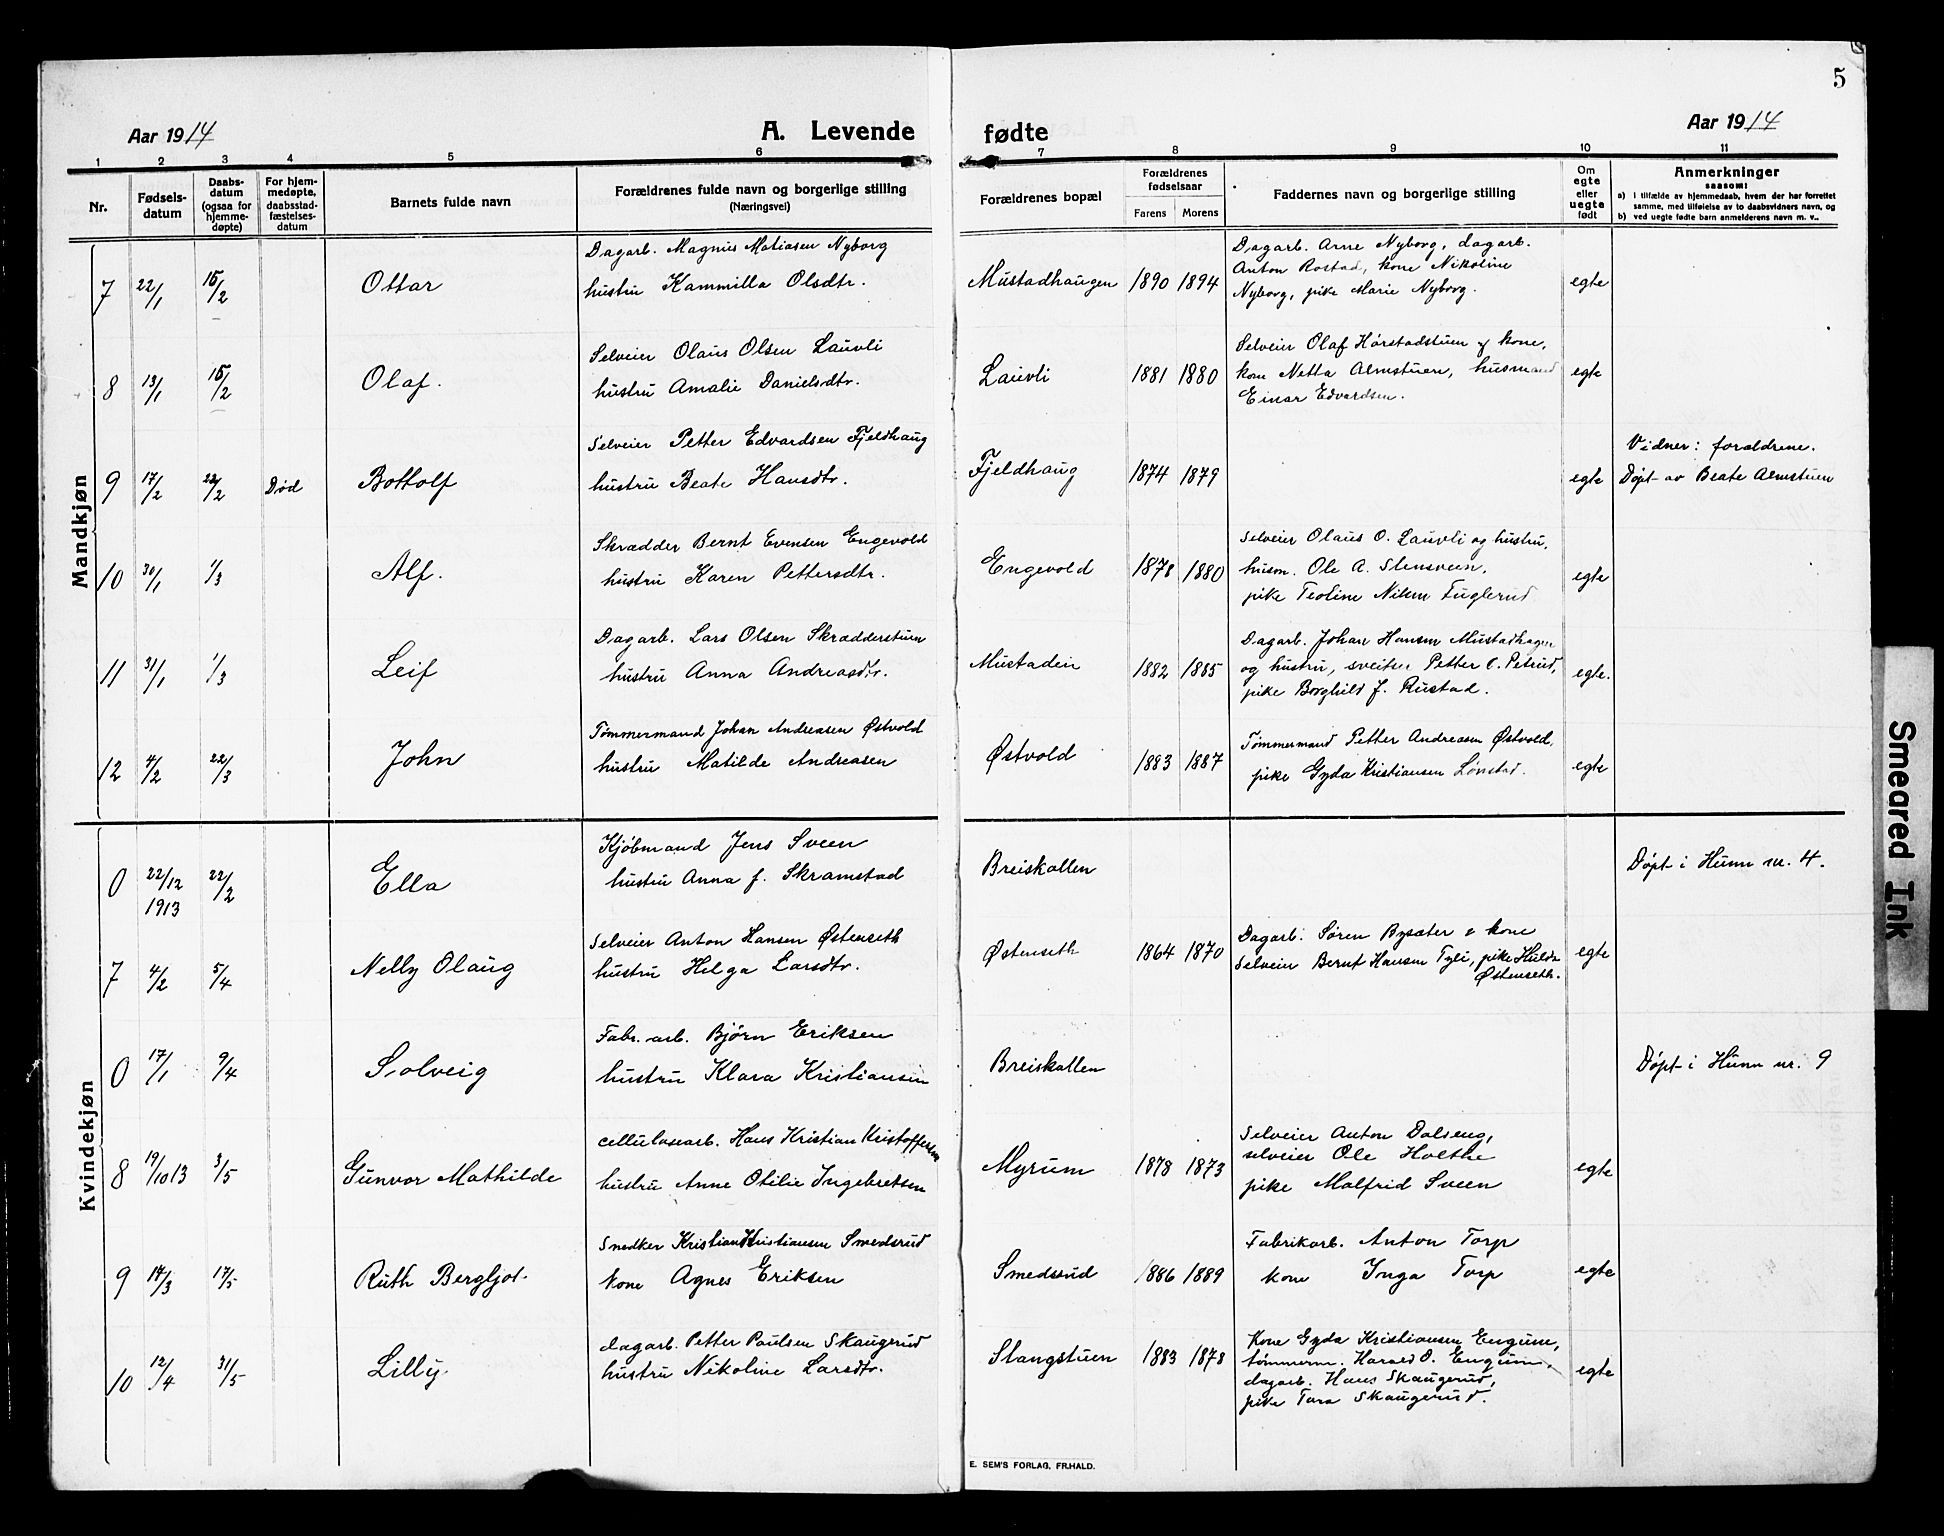 5
Aar 1914
A. Levende fødte
Aar 1914
1 2 3 4 5 6 7 8 9 10 11
Nr.
Fødsels-
datum
Daabs-
datum
(ogsaa for
hjemme-
døpte)
For hjem-
medøpte,
daabsstad-
fæstelses-
datum
Barnets fulde navn
Forældrenes fulde navn og borgerlige stilling
(Næringsvei)
Forældrenes bopæl
Forældrenes
fødselsaar
Farens Morens
Faddernes navn og borgerlige stilling
Om
egte
eller
uegte
født
Anmerkninger
saasom:
a) i tilfælde av hjemmedaab, hvem der har forrettet
samme, med tilføielse av to daabsvidners navn, og
b) ved uegte fødte barn anmelderens navn m. v..
Mandkjøn
7 22/1 15/2 Ottar
Dagarb. Magnus Matiasen Nyborg
hustru Kammilla Olsdtr.
Mustadhaugen 1890 1894
Dagarb. Arne Nyborg, dagarb.
Anton Rostad, kone Nikoline
Nyborg, pike Marie Nyborg.
egte
8 13/1 15/2 Olaf.
Selveier Olaus Olsen Lauvli
hustru Amalie Danielsdtr.
Lauvli 1881 1880
Selveier Olaf Hørstadstuen & kone,
kone Netta Almstuen, husmand
Einar Edvardsen.
egte
9 17/2 22/2 Død Bottolf
Selveier Petter Edvardsen Fjeldhaug
hustru Beate Hansdtr.
Fjeldhaug 1874 1879
egte
Vidner: forældrene.
Døpt av Beate Almstuen
10 30/1 1/3 Alf.
Skrædder Bernt Evensen Engevold
hustru Karen Pettersdtr.
Engevold 1878 1880
Selveier Olaus O. Lauvli og hustru,
husm. Ole A. Stensveen,
pike Teoline Nilsen Fuglerud
egte
11 31/1 1/3 Leif
Dagarb. Lars Olsen Skrædderstuen
hustru Anna Andreasdtr.
Mustadein 1882 1885
Dagarb. Johan Hansen Mustadhagen
og hustru, sveitser Petter C. Petrud,
pike Borghild J. Rustad.
egte.
12 4/2 22/3 John
Tømmermand Johan Andreasen Østvold
hustru Matilde Andreasen
Østvold 1883 1887
Tømmermand Petter Andreasen Østvold,
pike Gyda Kristiansen Lønstad.
egte
Kvindekjøn
0 22/12 1913 22/2 Ella
Kjøbmand Jens Sveen
hustru Anna f. Skramstad
Breiskallen
Døpt i Hunn nr. 4.
7 4/2 5/4 Nelly Olaug
Selveier Anton Hansen Østenseth
hustru Helga Larsdtr.
Østenseth 1864 1870
Dagarb. Søren Bysæter & kone
Selveier Bernt Hansen Tyli, pike Hulda
Østenseth.
egte
0 17/1 9/4 Solveig
Fabr. arb. Bjørn Eriksen
hustru Klara Kristiansen
Breiskallen
Døpt i Hunn nr. 9
8 19/10 13 3/5 Gunvor Mathilde
cellulosearb. Hans Kristian Kristoffersen
hustru Anne Otilie Ingebretsen
Myrum 1878 1873
Selveier Anton Dalseng,
selveier Ole Holthe
pike Malfrid Sveen
egte
9 14/3 17/5 Ruth Bergljot.
Snedker Kristian Kristiansen Smedsrud
kone Agnes Eriksen
Smedsrud 1886 1889
Fabrikarb. Anton Torp
kone Inga Torp
egte
10 12/4 31/5 Lilly.
dagarb. Petter Paulsen Skaugerud
hustru Nikoline Larsdtr.
Stangstuen 1883 1878
Kone Gyda Kristiansen Engum,
tømmerm. Harald O. Engum,
dagarb. Hans Skaugerud,
pike Tora Skaugerud.
egte
E. SEM'S FORLAG, FR.HALD.
Smeared Ink